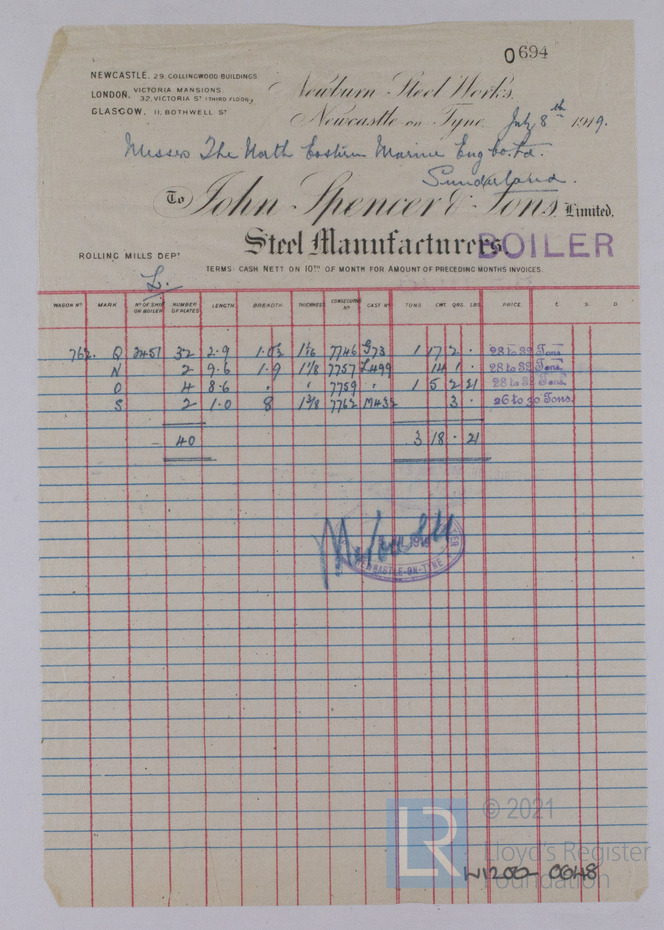 0694
NEWCASTLE, 29, COLLINGWOOD BUILDINGS
LONDON, VICTORIA MANSIONS, 32, VICTORIA ST (THIRD FLOOR)
GLASGOW, 11, BOTHWELL ST
Newburn Steel Works,
Newcastle-on-Tyne, July 8th 1919.
Messrs The North Eastern Marine Eng Co. Ltd.
Sunderland.
To John Spencer & Sons, Limited,
Steel Manufacturers. BOILER
ROLLING MILLS DEPT
L.
TERMS: CASH NETT ON 10TH OF MONTH FOR AMOUNT OF PRECEDING MONTHS INVOICES.
WAGON No MARK No OF SHIP OR BOILER NUMBER OF PLATES LENGTH. BREADTH. THICKNESS CONSECUTIVE No CAST No TONS. CWT. QRS. LBS. PRICE. £. S. D.
762. Q 2451 32 2.9 1.0½ 1 1/16 7746 G73 1 17 2 . 28 to 32 Tons.
N 2 9.6 1.9 1 1/8 7757 L499 14 1 . 28 to 32 Tons.
O 4 8.6 " " 7759 " 1 5 2 21 28 to 32 Tons.
S 2 1.0 8 1 3/8 7762 M432 3 . 26 to 30 Tons.
40 3 18 . 21
1919
NEWCASTLE-ON-TYNE
LR © 2021
Lloyd's Register
Foundation
W1200-0048